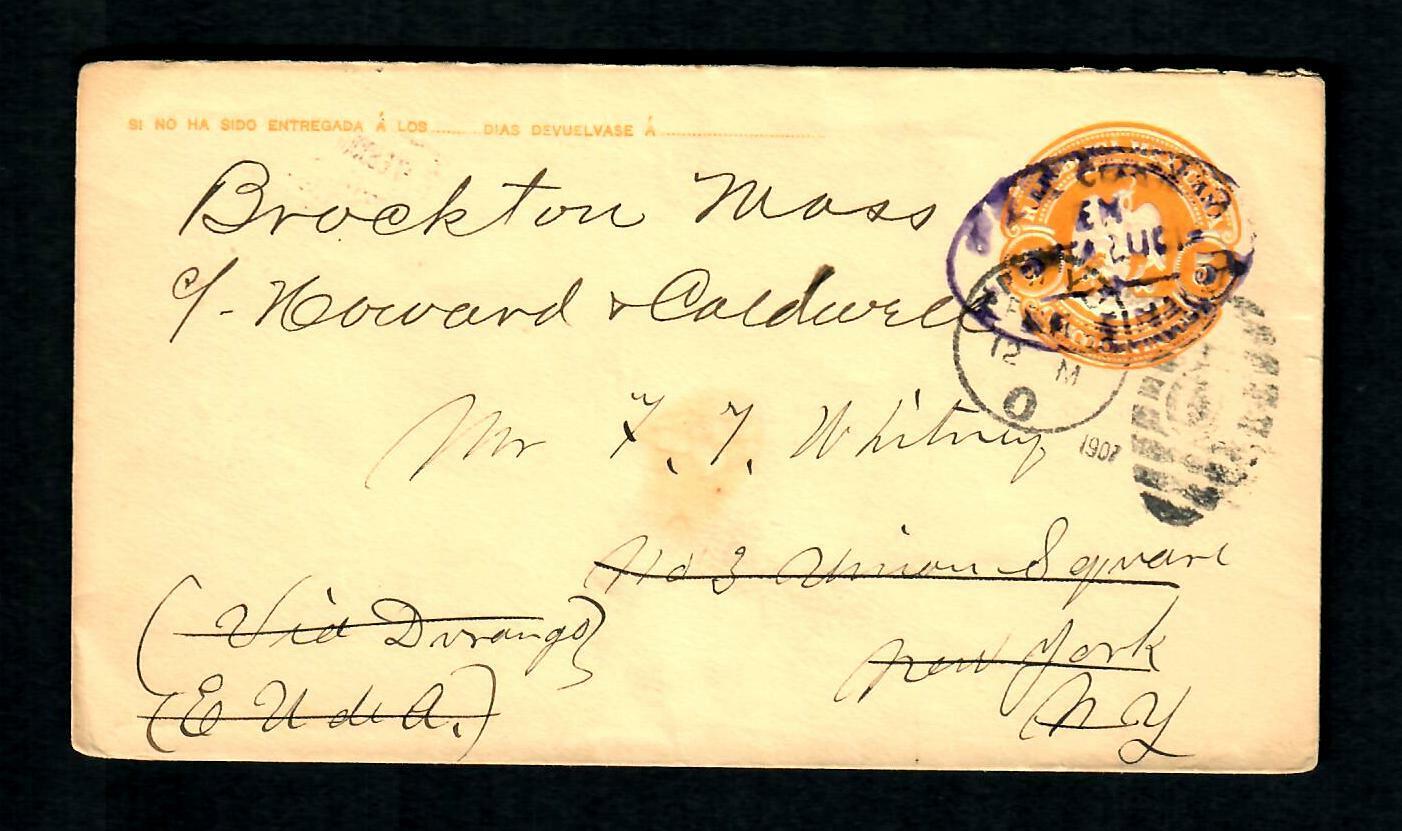 SI NO HA SIDO ENTREGADA Á LOS...... DIAS DEVUELVASE Á ......................
Brockton Mass
c/- Howard & Caldwell
EN
12 M
O
1907
Mr F. F. Whitney
No 3 Union Square
New York
N Y
(Via Durango)
(E U de A.)